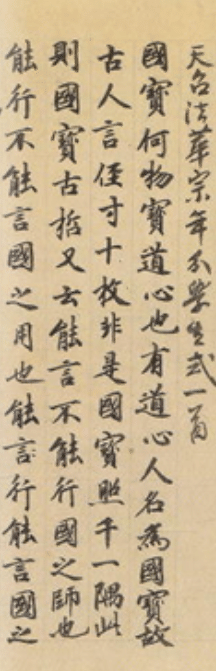 天台法華宗年分學生式一首
國寶何物寶道心也有道心人名為國寶故
古人言徑寸十枚非是國寶照千一隅此
則國寶古哲又云能言不能行國之師也
能行不能言國之用也能言行能言國之